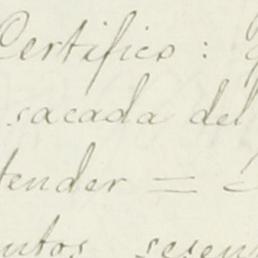 Certifico :
sacada del
tender =
ntos sesen